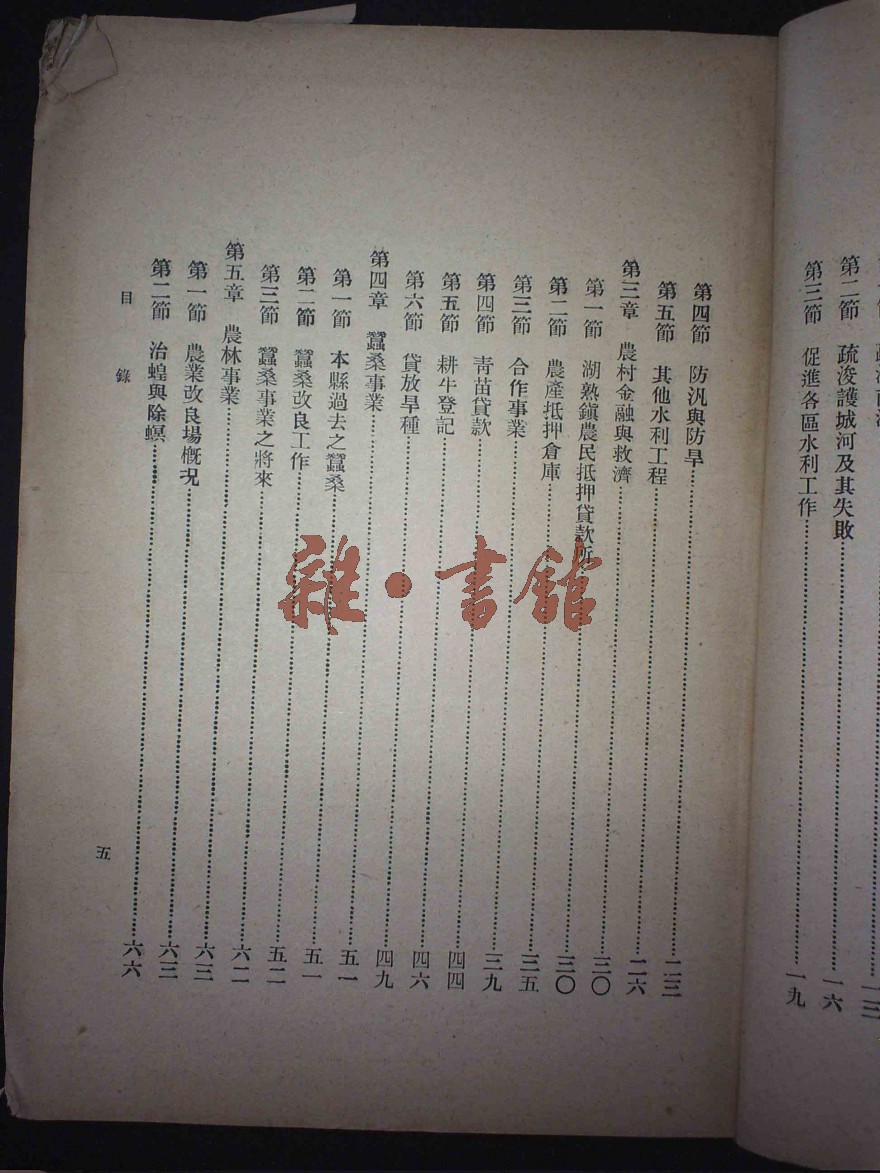 第二節 疏浚護城河及其失敗……一六
第三節 促進各區水利工作……一九
第四節 防汛與防旱……二三
第五節 其他水利工程……二六
第三章 農村金融與救濟……三〇
第一節 湖熟鎮農民抵押貸款所……三〇
第二節 農產抵押倉庫……三五
第三節 合作事業……三九
第四節 靑苗貸款……四四
第五節 耕牛登記……四六
第六節 貸放旱種……四九
第四章 蠶桑事業……五一
第一節 本縣過去之蠶桑……五一
第二節 蠶桑改良工作……五二
第三節 蠶桑事業之將來……六二
第五章 農林事業……六三
第一節 農業改良場槪况……六三
第二節 治蝗與除螟……六六
目 錄
五
雜·書館